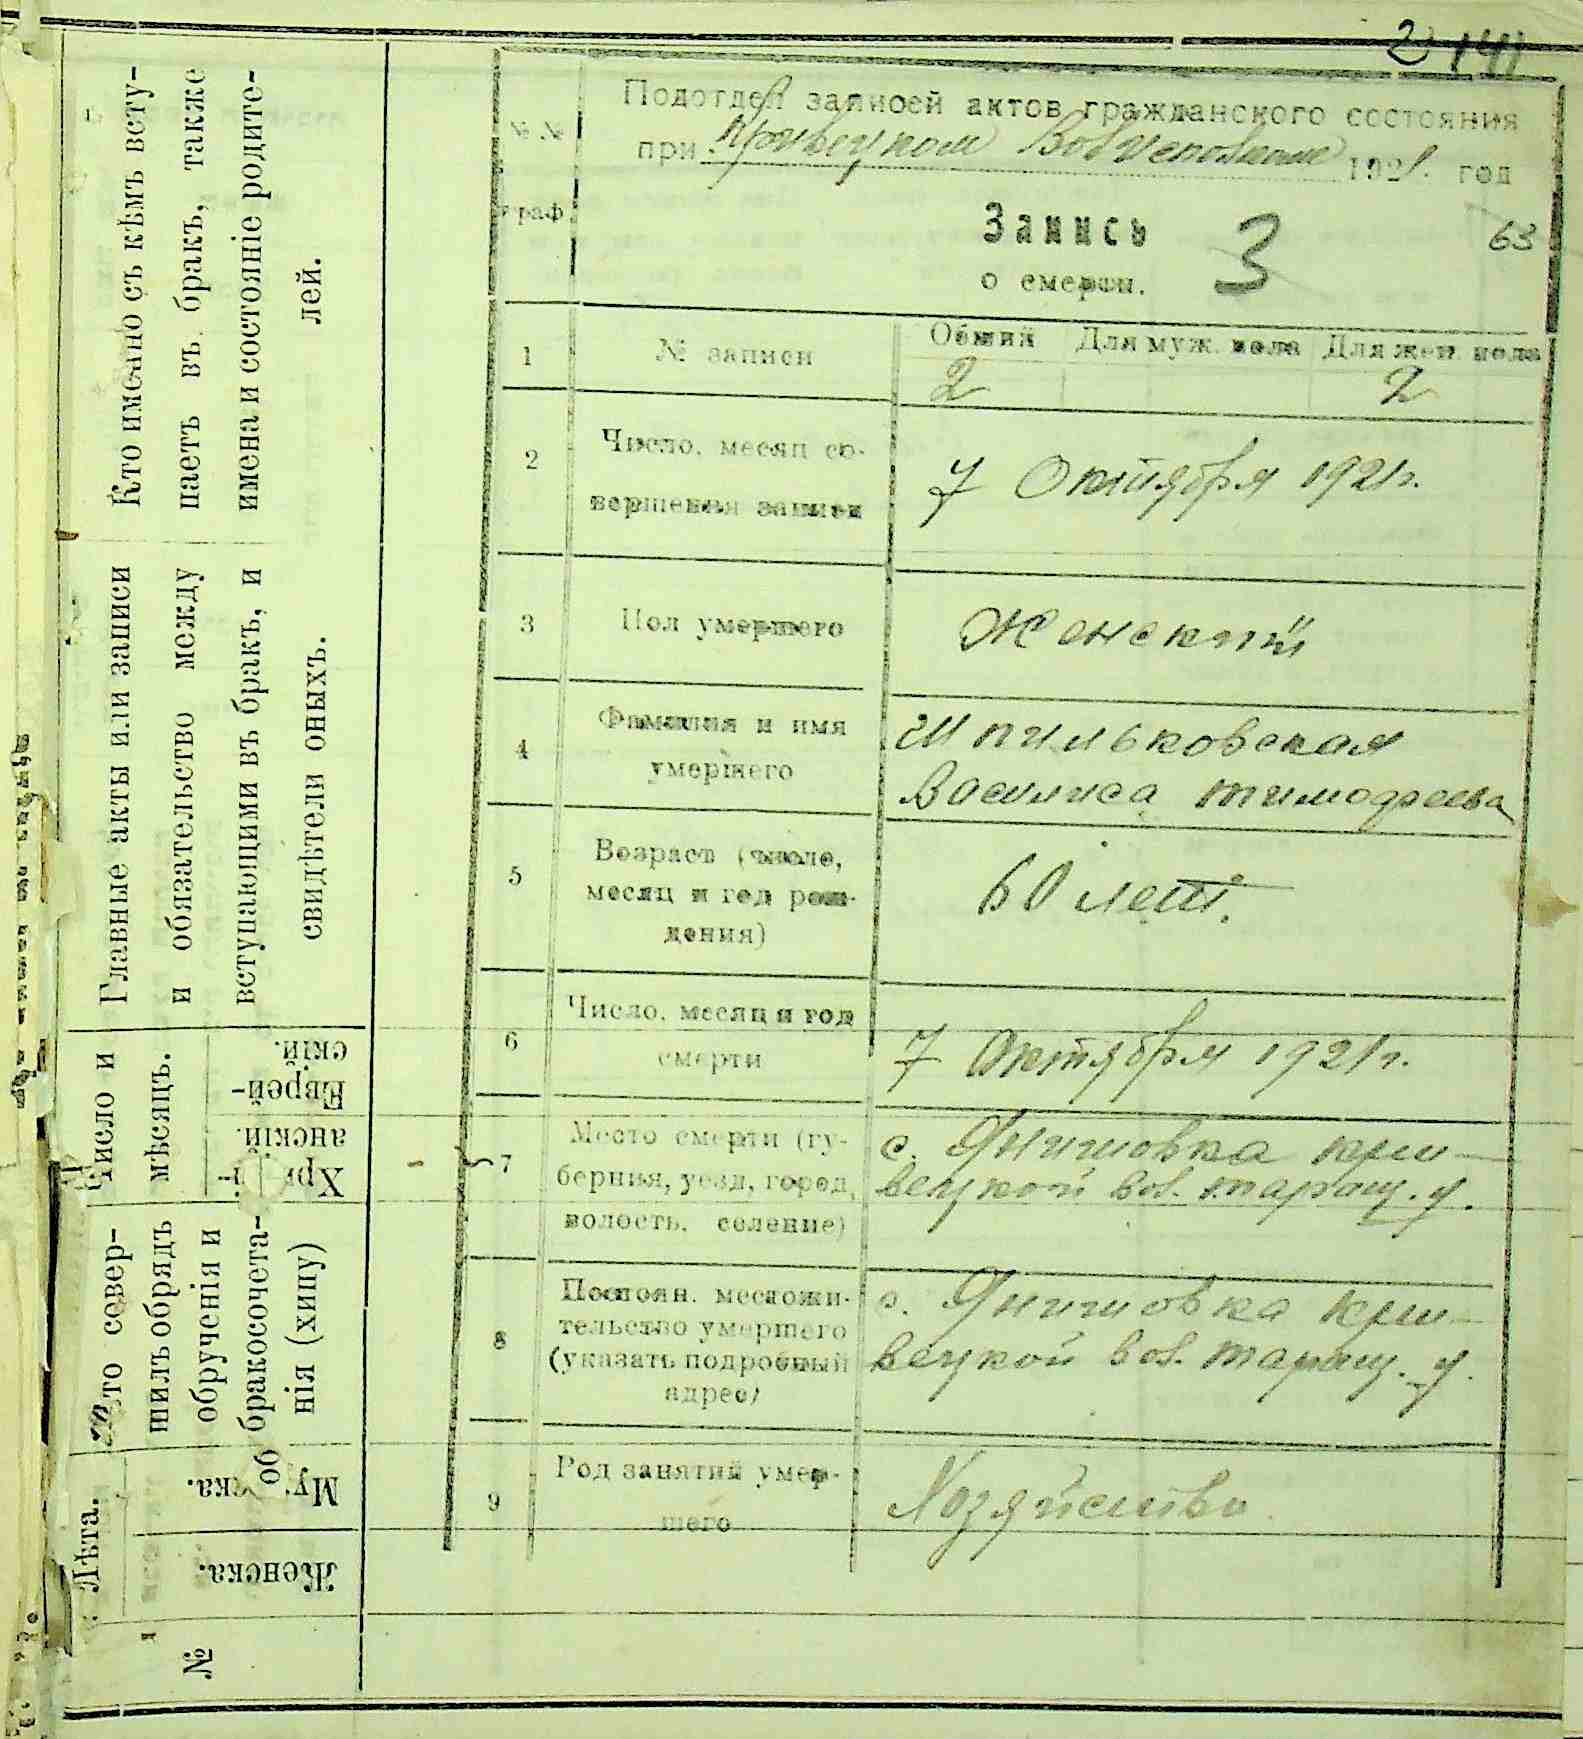 2 141
Подотдел записей актов гражданского состояния
при Кривецком Волисполкоме 1921. год
№ №
граф.
Запись
о смерти.
3
63
1
№ записи
Общий Для муж. пола Для жен. пола
2 2
2
Число, месяц со-
вершения записи
7 Октября 1921 г.
3
Пол умершего
Женский
4
Фамилия и имя
умершего
Шпильковская
Василиса Тимофеева
5
Возраст (число,
месяц и год рож-
дения)
60 лет.
6
Число, месяц и год
смерти
7 Октября 1921 г.
7
Место смерти (гу-
берния, уезд, город,
волость, селение)
с. Янишовка Кри-
вецкой вол. Таращ. у.
8
Постоян. местожи-
тельство умершего
(указать подробный
адрес)
с. Янишовка Кри-
вецкой вол. Таращ. у.
9
Род занятий умер-
шего
Хозяйство
Кто именно съ кѣмъ всту-
паетъ въ бракъ, также
имена и состояніе родите-
лей.
Главные акты или записи
и обязательство между
вступающими въ бракъ, и
свидѣтели оныхъ.
Число и
мѣсяцъ.
Еврей-
скій.
Хри-
анскій.
Кто совер-
шилъ обрядъ
обрученія и
бракосочета-
нія (хипу)
Лѣта.
Му ска.
Женска.
№